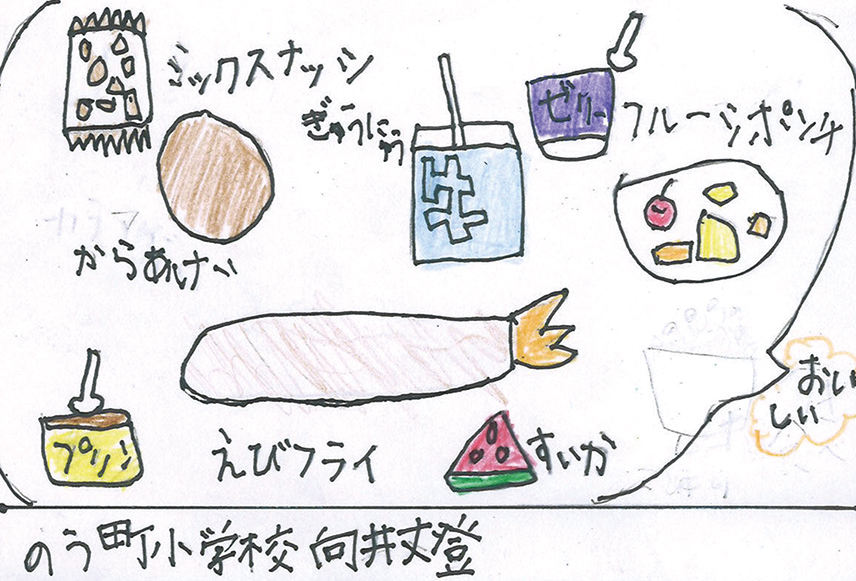 ミックスナッツ
ぎゅうにゅう
牛
ゼリー
フルーツポンチ
からあげ
プリン
えびフライ
すいか
おい
しい
のう町小学校 向井丈登